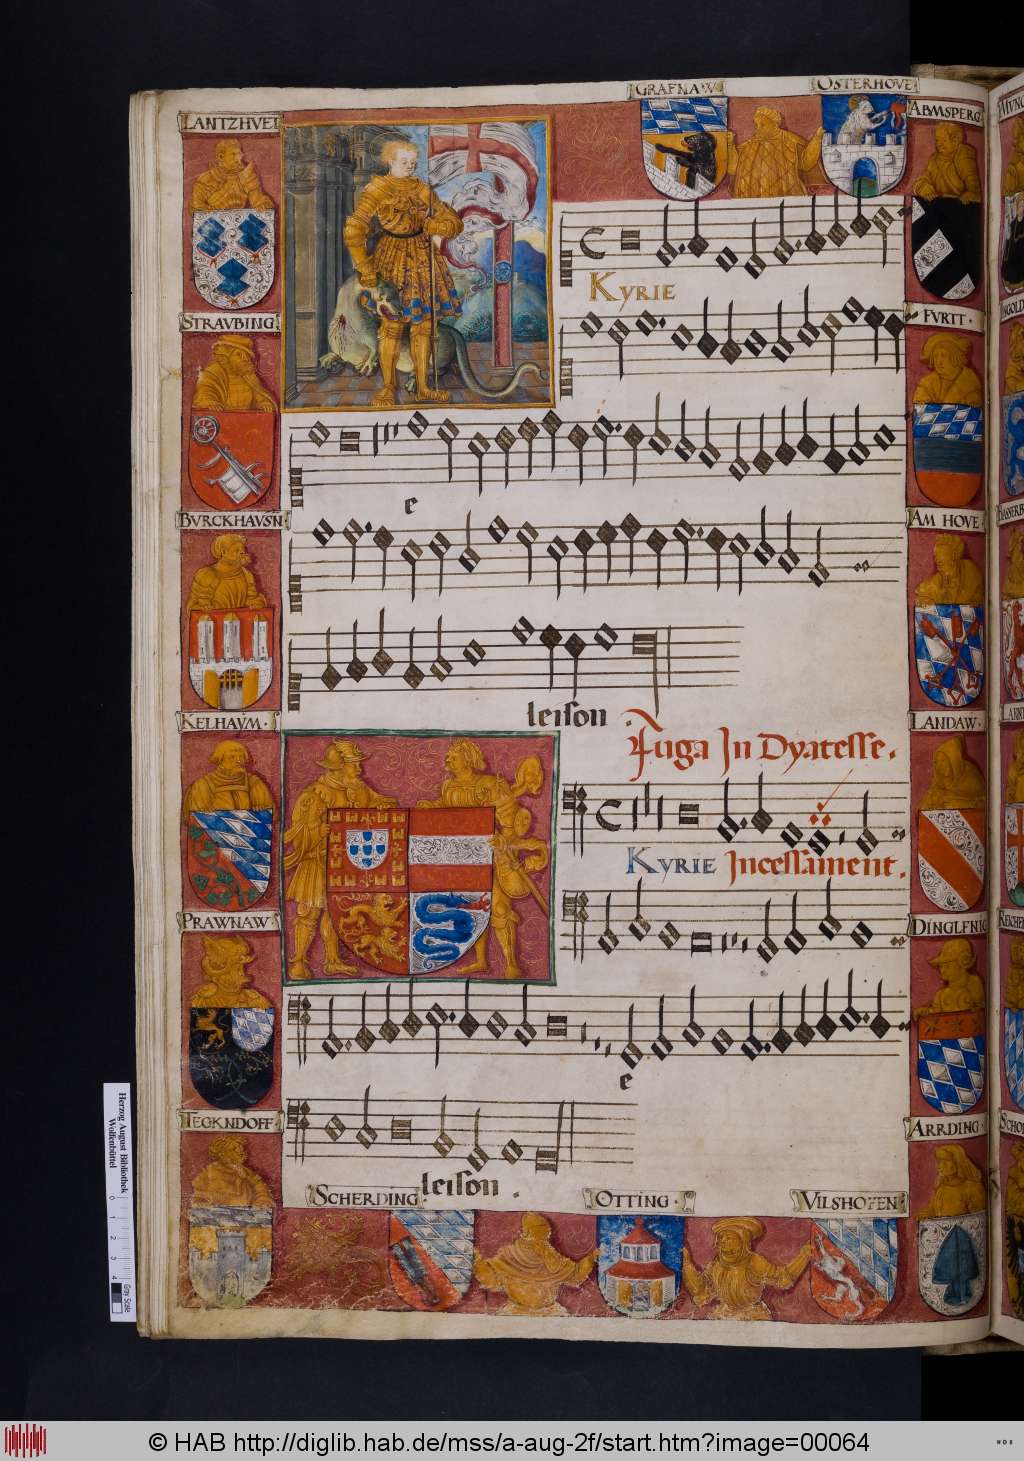 GRAFNAW
OSTERHOVE
LANTZHVET
ABMSPERG
KYRIE
STRAVBING
FVRTT
e
BVRCKHAVSN
AM HOVE
leison
KELHAYM
LANDAW
Fuga In Dyatesse.
KYRIE Incessament.
PRAWNAW
DINGLFNIG
e
TECKNDOFF
ARRDING
leison.
SCHERDING
OTTING
VILSHOFEN
Herzog August Bibliothek
Wolfenbüttel
0 1 2 3 4
Gray Scale
© HAB http://diglib.hab.de/mss/a-aug-2f/start.htm?image=00064